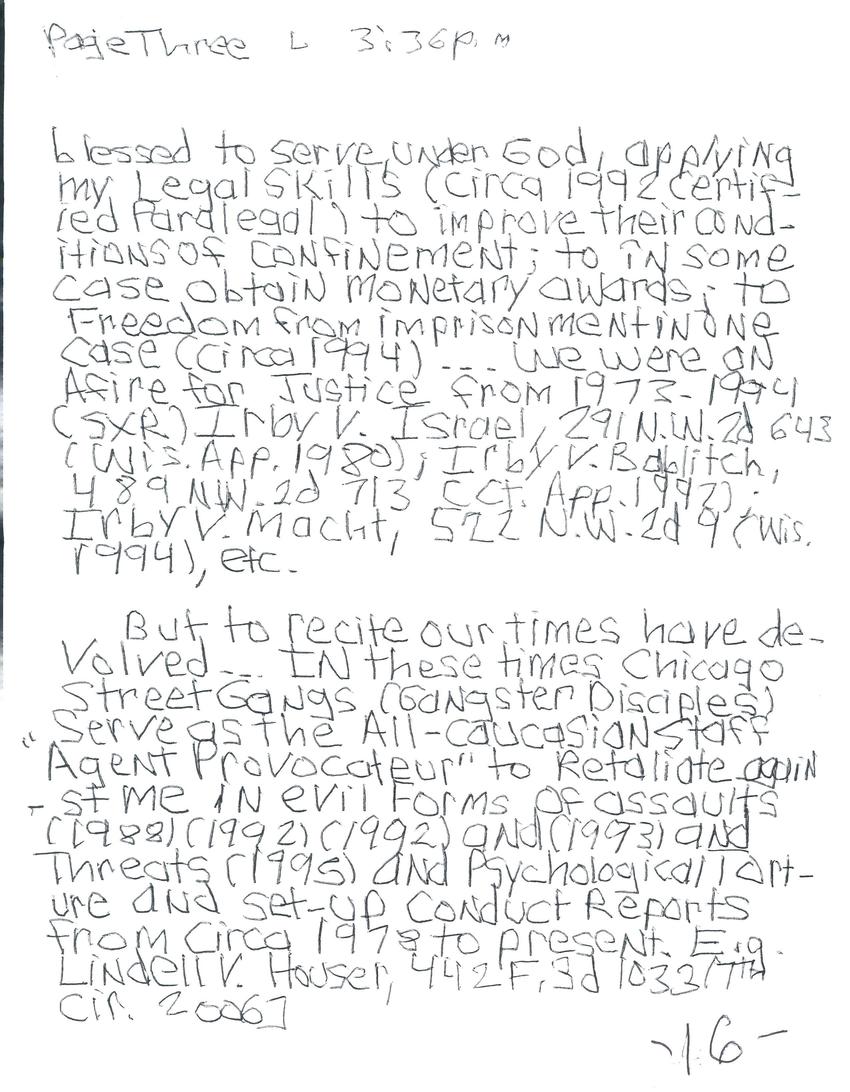 Page Three L 3:36p.m
blessed to serve, under God, applying
my Legal Skills (Circa 1992 Certif-
ied Paralegal) to improve their cond-
itions of confinement; to in some
case obtain monetary awards; to
Freedom from imprisonment in one
case (Circa 1994) .... We were on
Afire for Justice from 1973-1994
(SXR) Irby V. Israel, 291 N.W.2d 643
(Wis. App. 1980); Irby V. Bablitch,
489 NW.2d 713 (Ct. App. 1992);
Irby V. Macht, 522 N.W.2d 9 (Wis.
1994), etc.
But to recite our times have de-
Volved ... IN these times Chicago
Street Gangs (Gangster Disciples)
Serve as the All-Caucasian Staff
"Agent Provocateur" to Retaliate again
-st me IN evil Forms of assaults
(1988) (1992) (1992) and (1993) and
Threats (1995) and Psychological Tort-
ure and set-up Conduct Reports
from Circa 1978 to present. E.g.
Lindell V. Houser, 442 F.3d 1033 (7th
Cir. 2006]
-16-